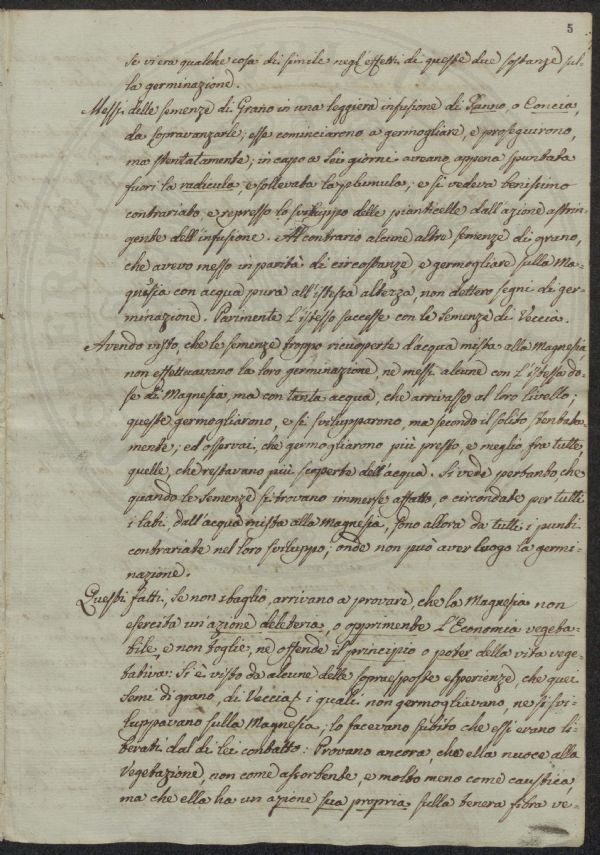 5
se vi era qualche cosa di simile negl'effetti di queste due sostanze sul-
la germinazione.
Messi delle semenze di Grano in una leggiera infusione di Tanno, o Concia,
da sopravanzarle; esse cominciarono a germogliare, e proseguirono,
ma stentatamente; in capo a sei giorni aveano appena spuntata
fuori la radicula, e sollevata la plumula; e si vedeva benissimo
contrariato, e represso lo sviluppo delle pianticelle dall'azione astrin-
gente dell'infusione. Al contrario alcune altre semenze di grano,
che avevo messo in parità di circostanze e germogliare sulla Ma-
gnesia con acqua pura all'istessa altezza, non dettero segni di ger-
minazione. Parimente l'istesso successe con le Semenze di Veccia.
Avendo visto, che le semenze troppo ricuoperte d'acqua mista alla Magnesia
non effettuavano la loro germinazione, ne messi alcune con l'istessa do-
se di Magnesia, ma con tanta acqua, che arrivasse al loro livello;
queste germogliarono, e si svilupparono, ma secondo il solito stentata-
mente; ed osservai, che germogliarono più presto, e meglio fra tutte
quelle, che restavano più scoperte dell'acqua. Si vede pertanto, che
quando le Semenze si trovano immerse affatto, o circondate per tutti
i lati dall'acqua mista alla Magnesia, sono allora da tutti i punti
contrariate nel loro sviluppo; onde non può aver luogo la germi-
nazione.
Questi fatti, se non sbaglio, arrivano a provare, che la Magnesia non
esercita un'azione deleteria, o opprimente l'Economia vegeta-
bile, e non toglie, nè offende il principio o poter della vita vege-
tativa: Si è visto da alcune delle sopraesposte esperienze, che quei
semi di grano, di Veccia & i quali non germogliavano, ne si svi-
luppavano sulla Magnesia, lo facevano subito che essi erano li-
berati dal di lei contatto: Provano ancora, che ella nuoce alla
Vegetazione, non come assorbente, e molto meno come caustica,
ma che ella ha un azione sua propria sulla tenera fibra ve-